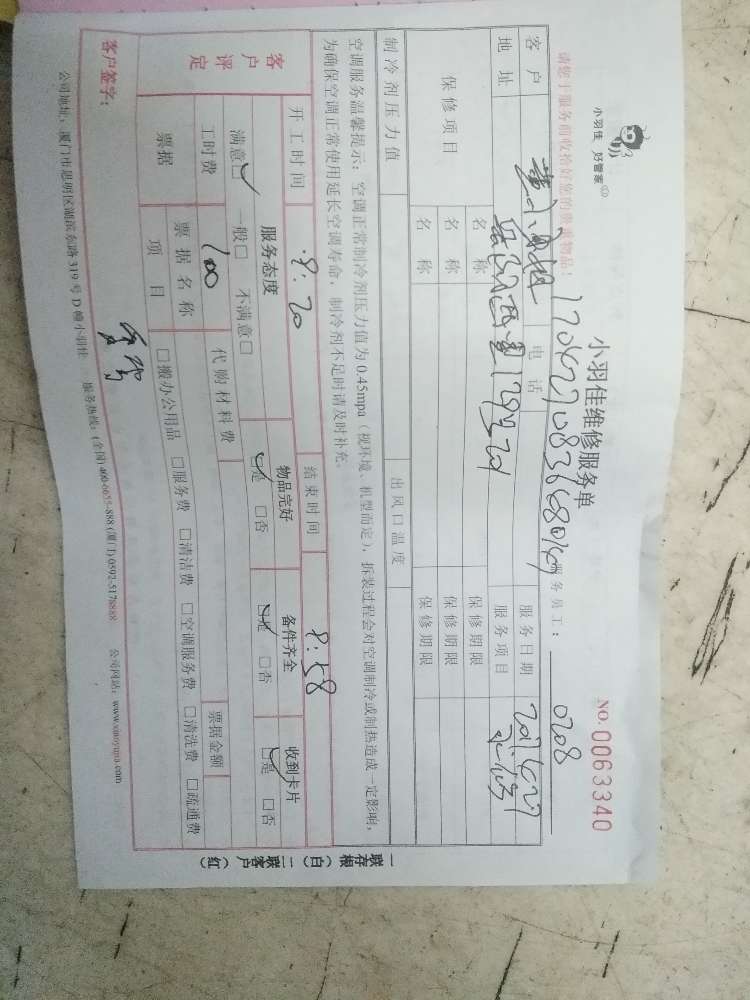 小羽佳 好管家
小羽佳维修服务单
NO. 0063340
请您于服务前收拾好您的贵重物品!
服务员工: 0708
客户 电话 服务日期
地址 服务项目
保修项目 名称 保修期限
名称 保修期限
名称 保修期限
制冷剂压力值 出风口温度
空调服务温馨提示:空调正常制冷剂压力值为0.45mpa(视环境、机型而定),拆装过程会对空调制冷或制热造成一定影响,
为确保空调正常使用延长空调寿命,制冷剂不足时请及时补充。
开工时间 8:20 结束时间 8:58
客户评定
服务态度 物品完好 备件齐全 收到卡片
满意□ 一般□ 不满意□ □是 □否 □是 □否 □是 □否
工时费 100 代购材料费 票据金额
票据 票据名称
项目 □搬办公用品 □服务费 □清洁费 □空调服务费 □清洗费 □疏通费
客户签字:
公司地址:厦门市思明区湖滨东路319号D幢小羽佳 服务热线:(全国)400-6655-888 (厦门)0592-5178888 公司网站:www.xiaoyujia.com
一联存根(白) 二联客户(红)